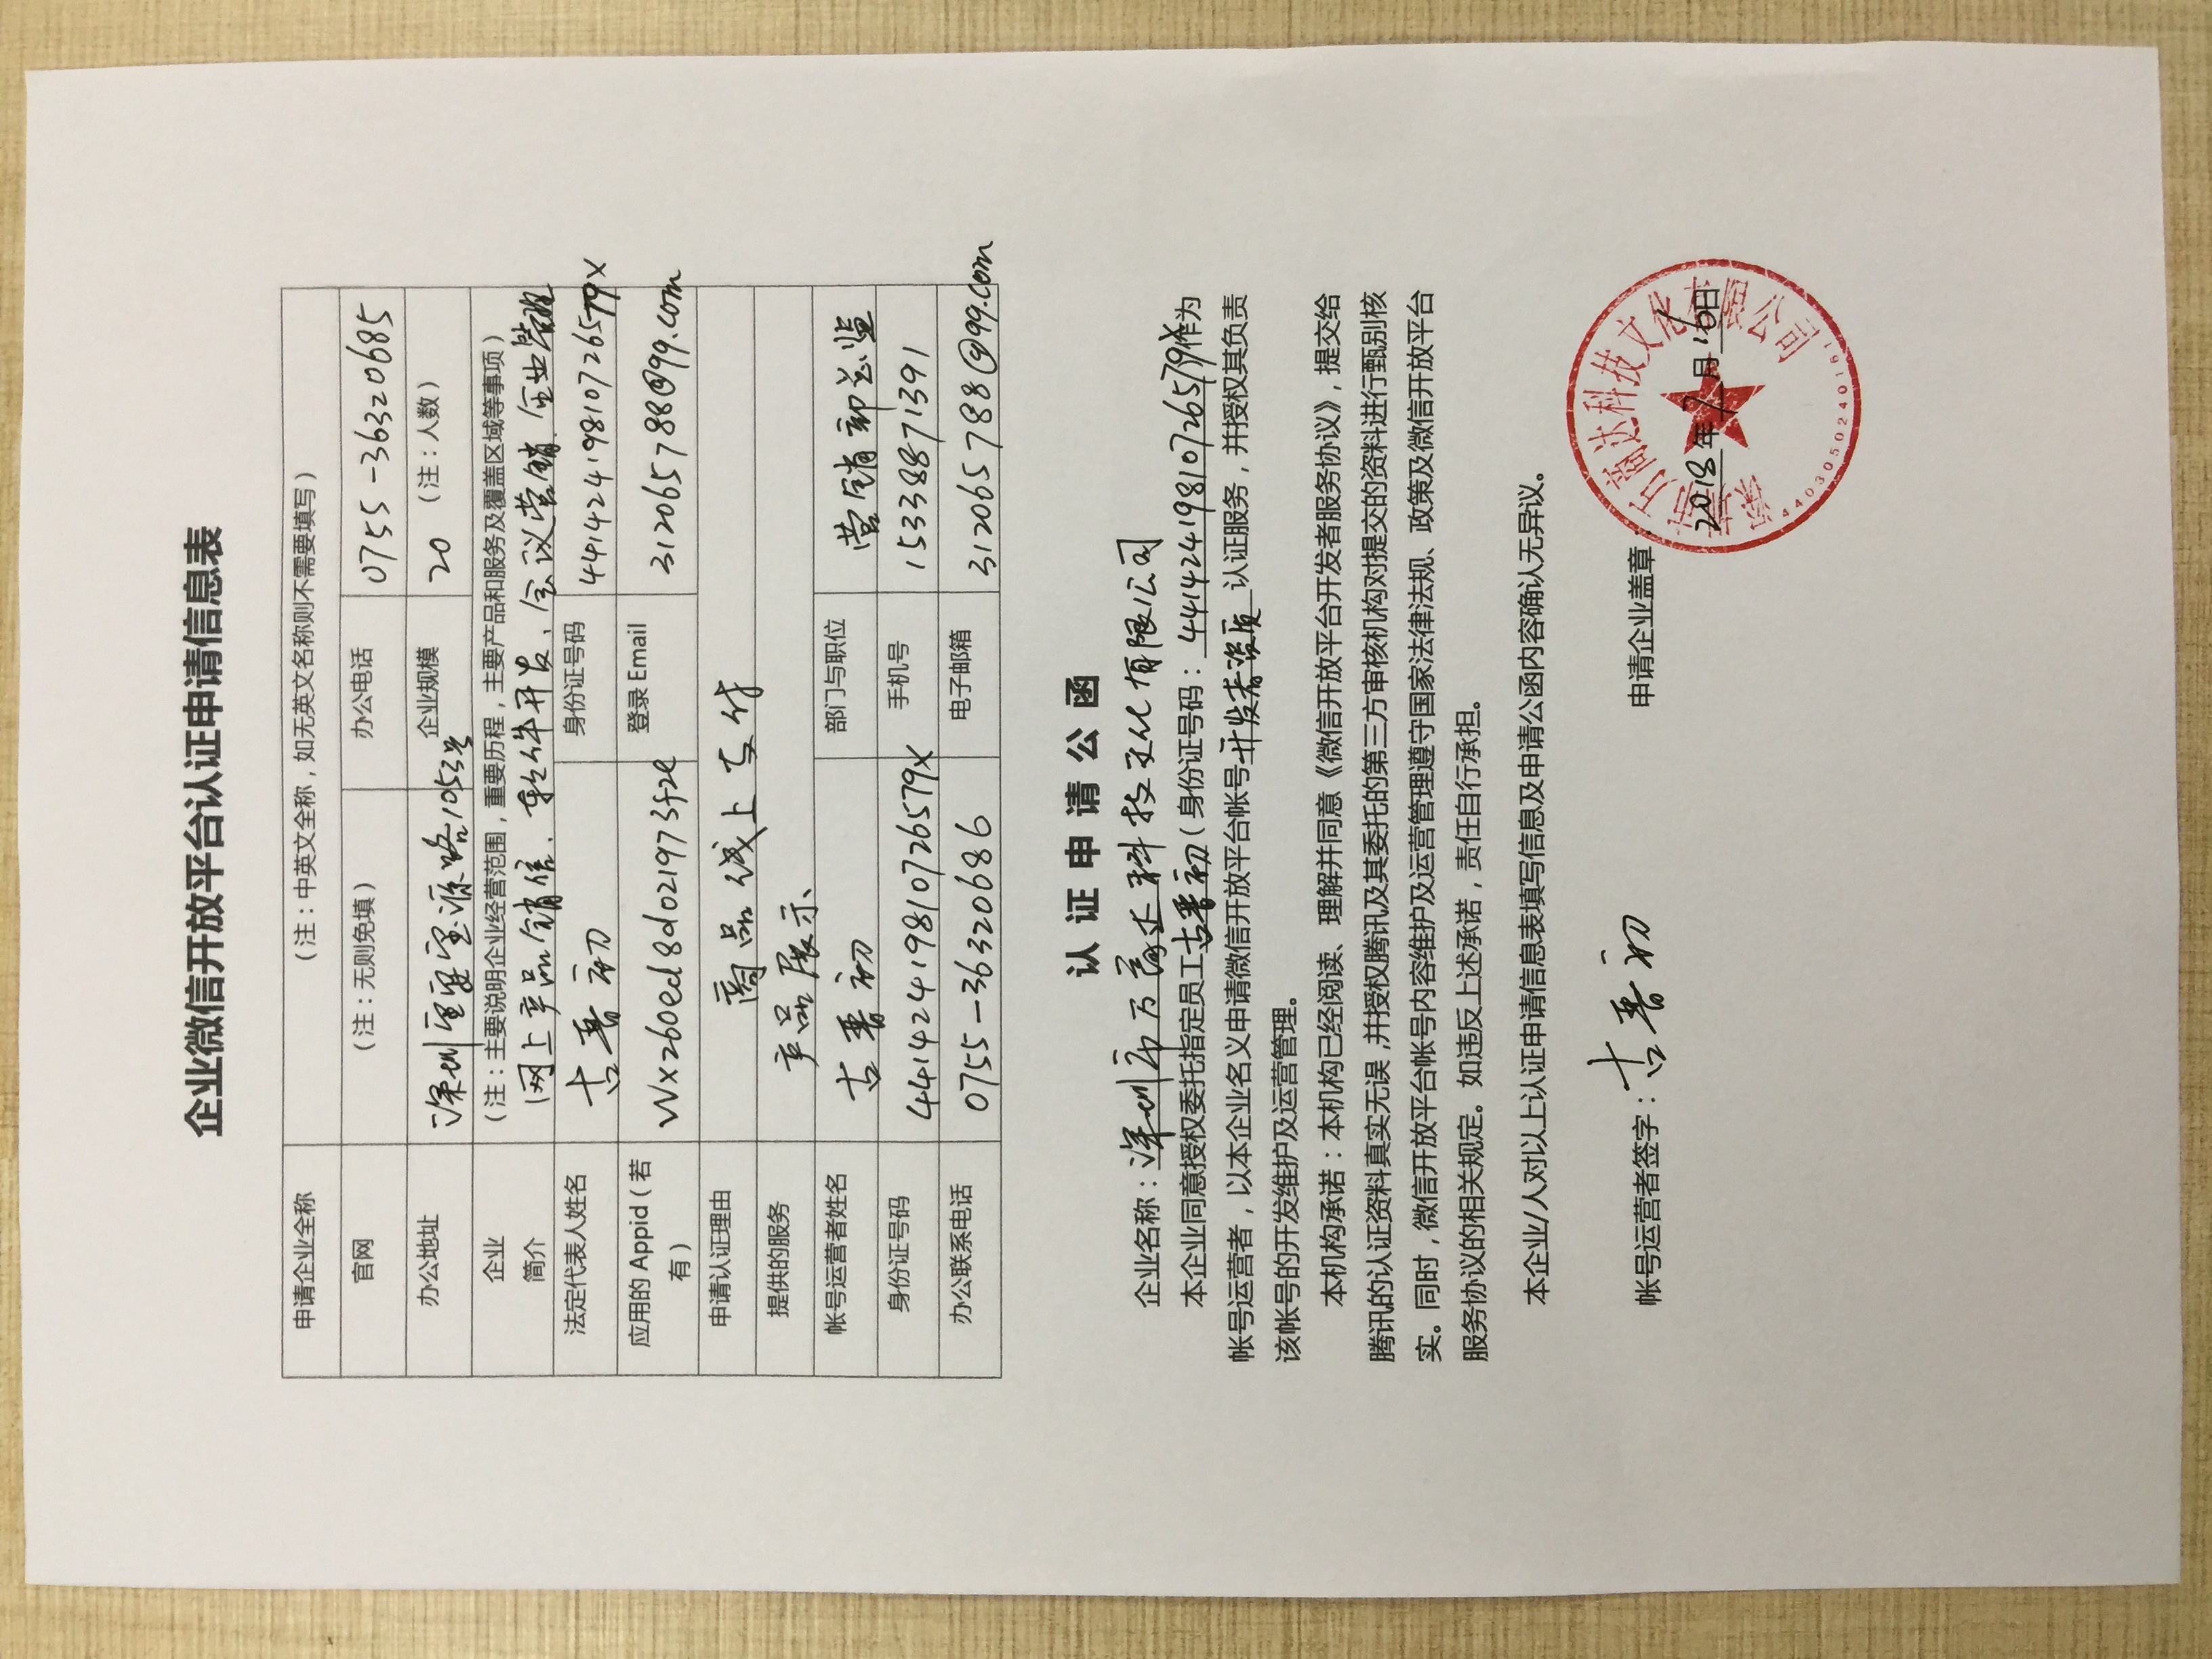 企业微信开放平台认证申请信息表
申请企业全称 （注：中英文全称，如无英文名称则不需要填写）
官网 （注：无则免填） 办公电话 0755-36320685
办公地址 深圳宝安宝源路1053号 企业规模 20 （注：人数）
企业 （注：主要说明企业经营范围，重要历程，主要产品和服务及覆盖区域等事项）
简介 网上产品销售、软件开发、会议营销、企业管理
法定代表人姓名 古晋初 身份证号码 44142419810726579X
应用的 Appid（若 wx260ed8d021973f2e 登录 Email 312065788@99.com
有）
申请认证理由 商品线上支付
提供的服务 产品展示
帐号运营者姓名 古晋初 部门与职位 营销部总监
身份证号码 44142419810726579X 手机号 15338871391
办公联系电话 0755-36320686 电子邮箱 312065788@99.com
认证申请公函
企业名称：深圳市万商达科技文化有限公司
本企业同意授权委托指定员工古晋初（身份证号码：44142419810726579X作为
帐号运营者，以本企业名义申请微信开放平台帐号开发者资质认证服务，并授权其负责
该帐号的开发维护及运营管理。
本机构承诺：本机构已经阅读、理解并同意《微信开放平台开发者服务协议》，提交给
腾讯的认证资料真实无误，并授权腾讯及其委托的第三方审核机构对提交的资料进行甄别核
实。同时，微信开放平台帐号内容维护及运营管理遵守国家法律法规、政策及微信开放平台
服务协议的相关规定。如违反上述承诺，责任自行承担。
本企业/人对以上认证申请信息表填写信息及申请公函内容确认无异议。
帐号运营者签字：古晋初 申请企业盖章：
深圳市万商达科技文化有限公司
2018年7月16日
4403050240161